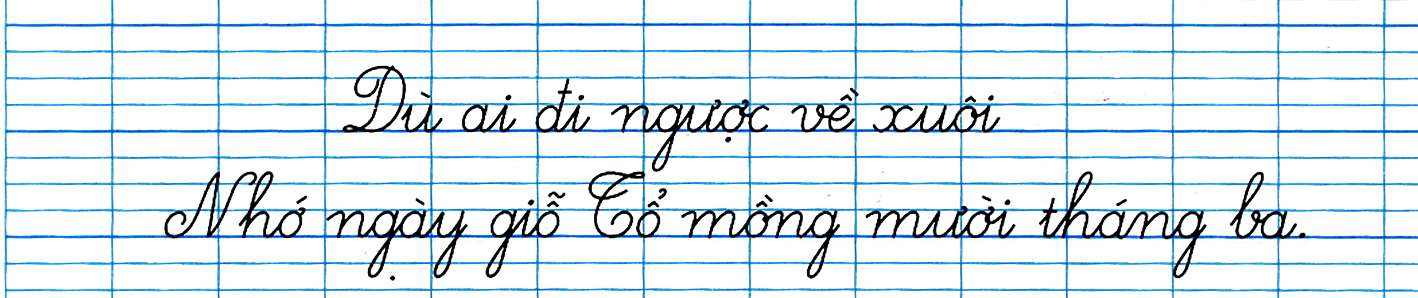 Dù ai đi ngược về xuôi
Nhớ ngày giỗ Tổ mồng mười tháng ba.